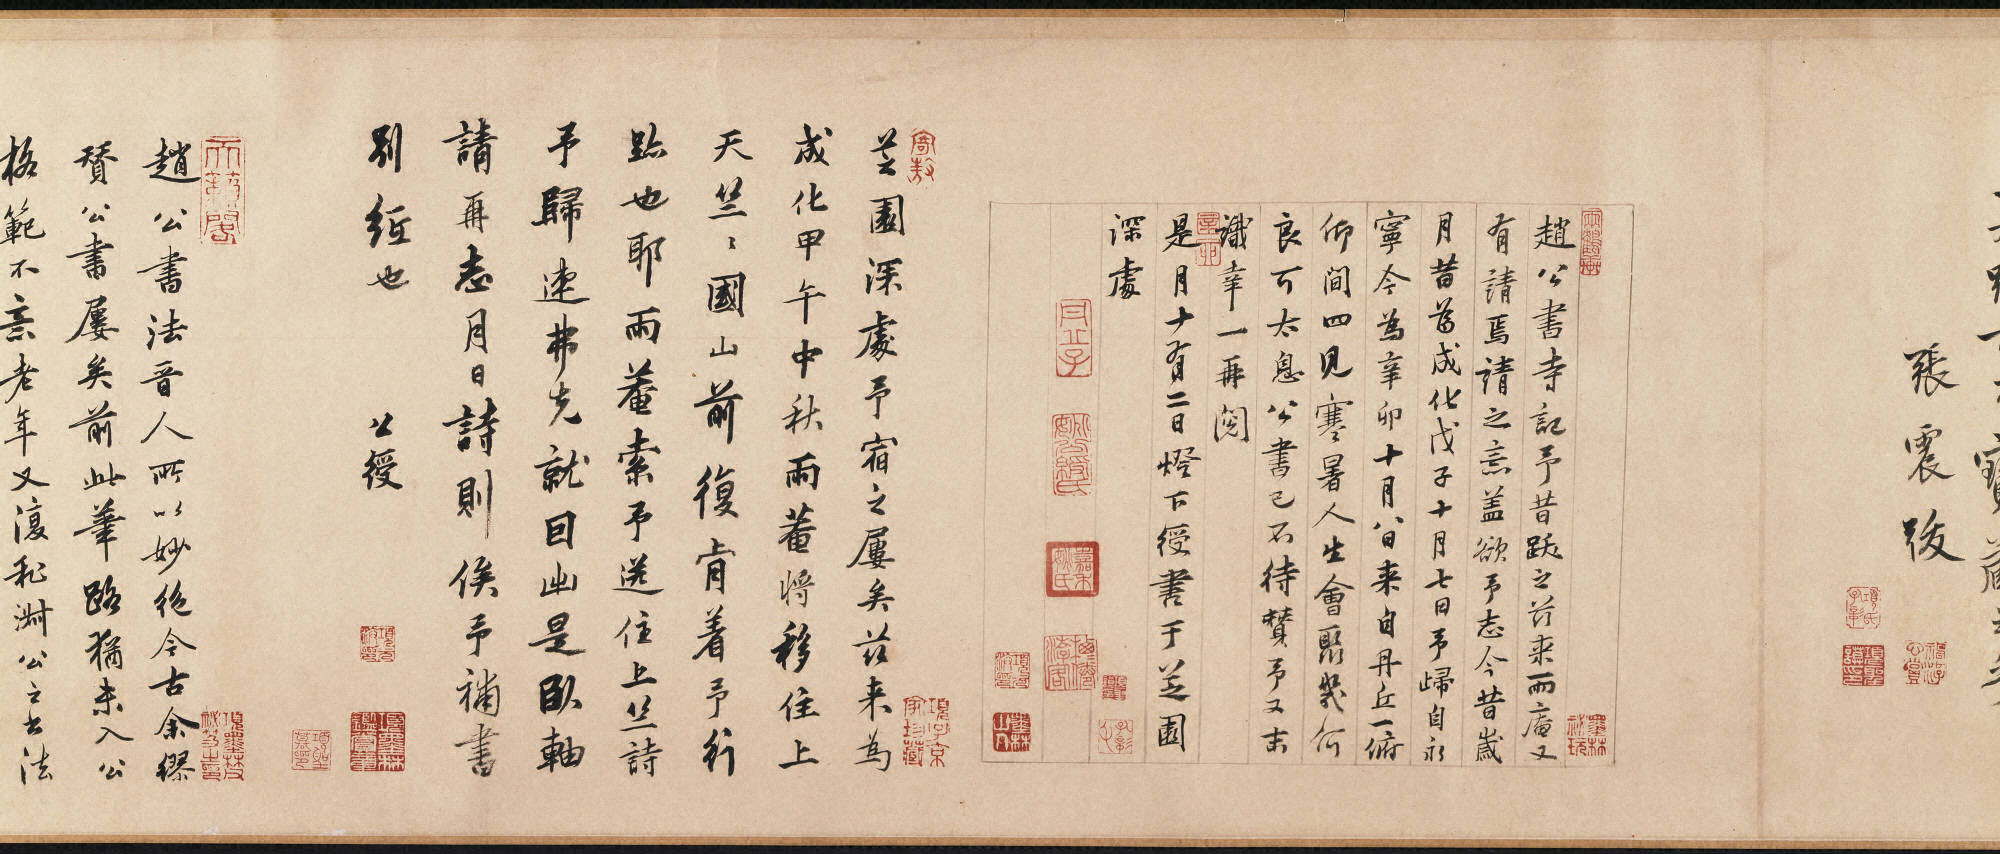 張震跋
趙公書寺記予昔跋之茲來而庵又
有請焉請之意蓋欲予志今昔歲
月昔為成化戊子十月七日予歸自永
寧今為辛卯十月八日來自丹丘一俯
仰間四見寒暑人生會聚幾何
良可太息公書已不待贊予又末
識幸一再閱
是月十有二日燈下綬書于芝園
深處
芝園深處予宿之屢矣茲来為
成化甲午中秋雨菴將移住上
天竺〻國山前復肯着予行
跡也耶雨菴索予送住上竺詩
予歸速弗克就目出是卧軸
請再志月日詩則俟予補書
別紙也 公綬
趙公書法晉人所以妙絶今古余繆
賛公書屢矣前此華路猶未入公
格範不意老年又復私淑公之書法